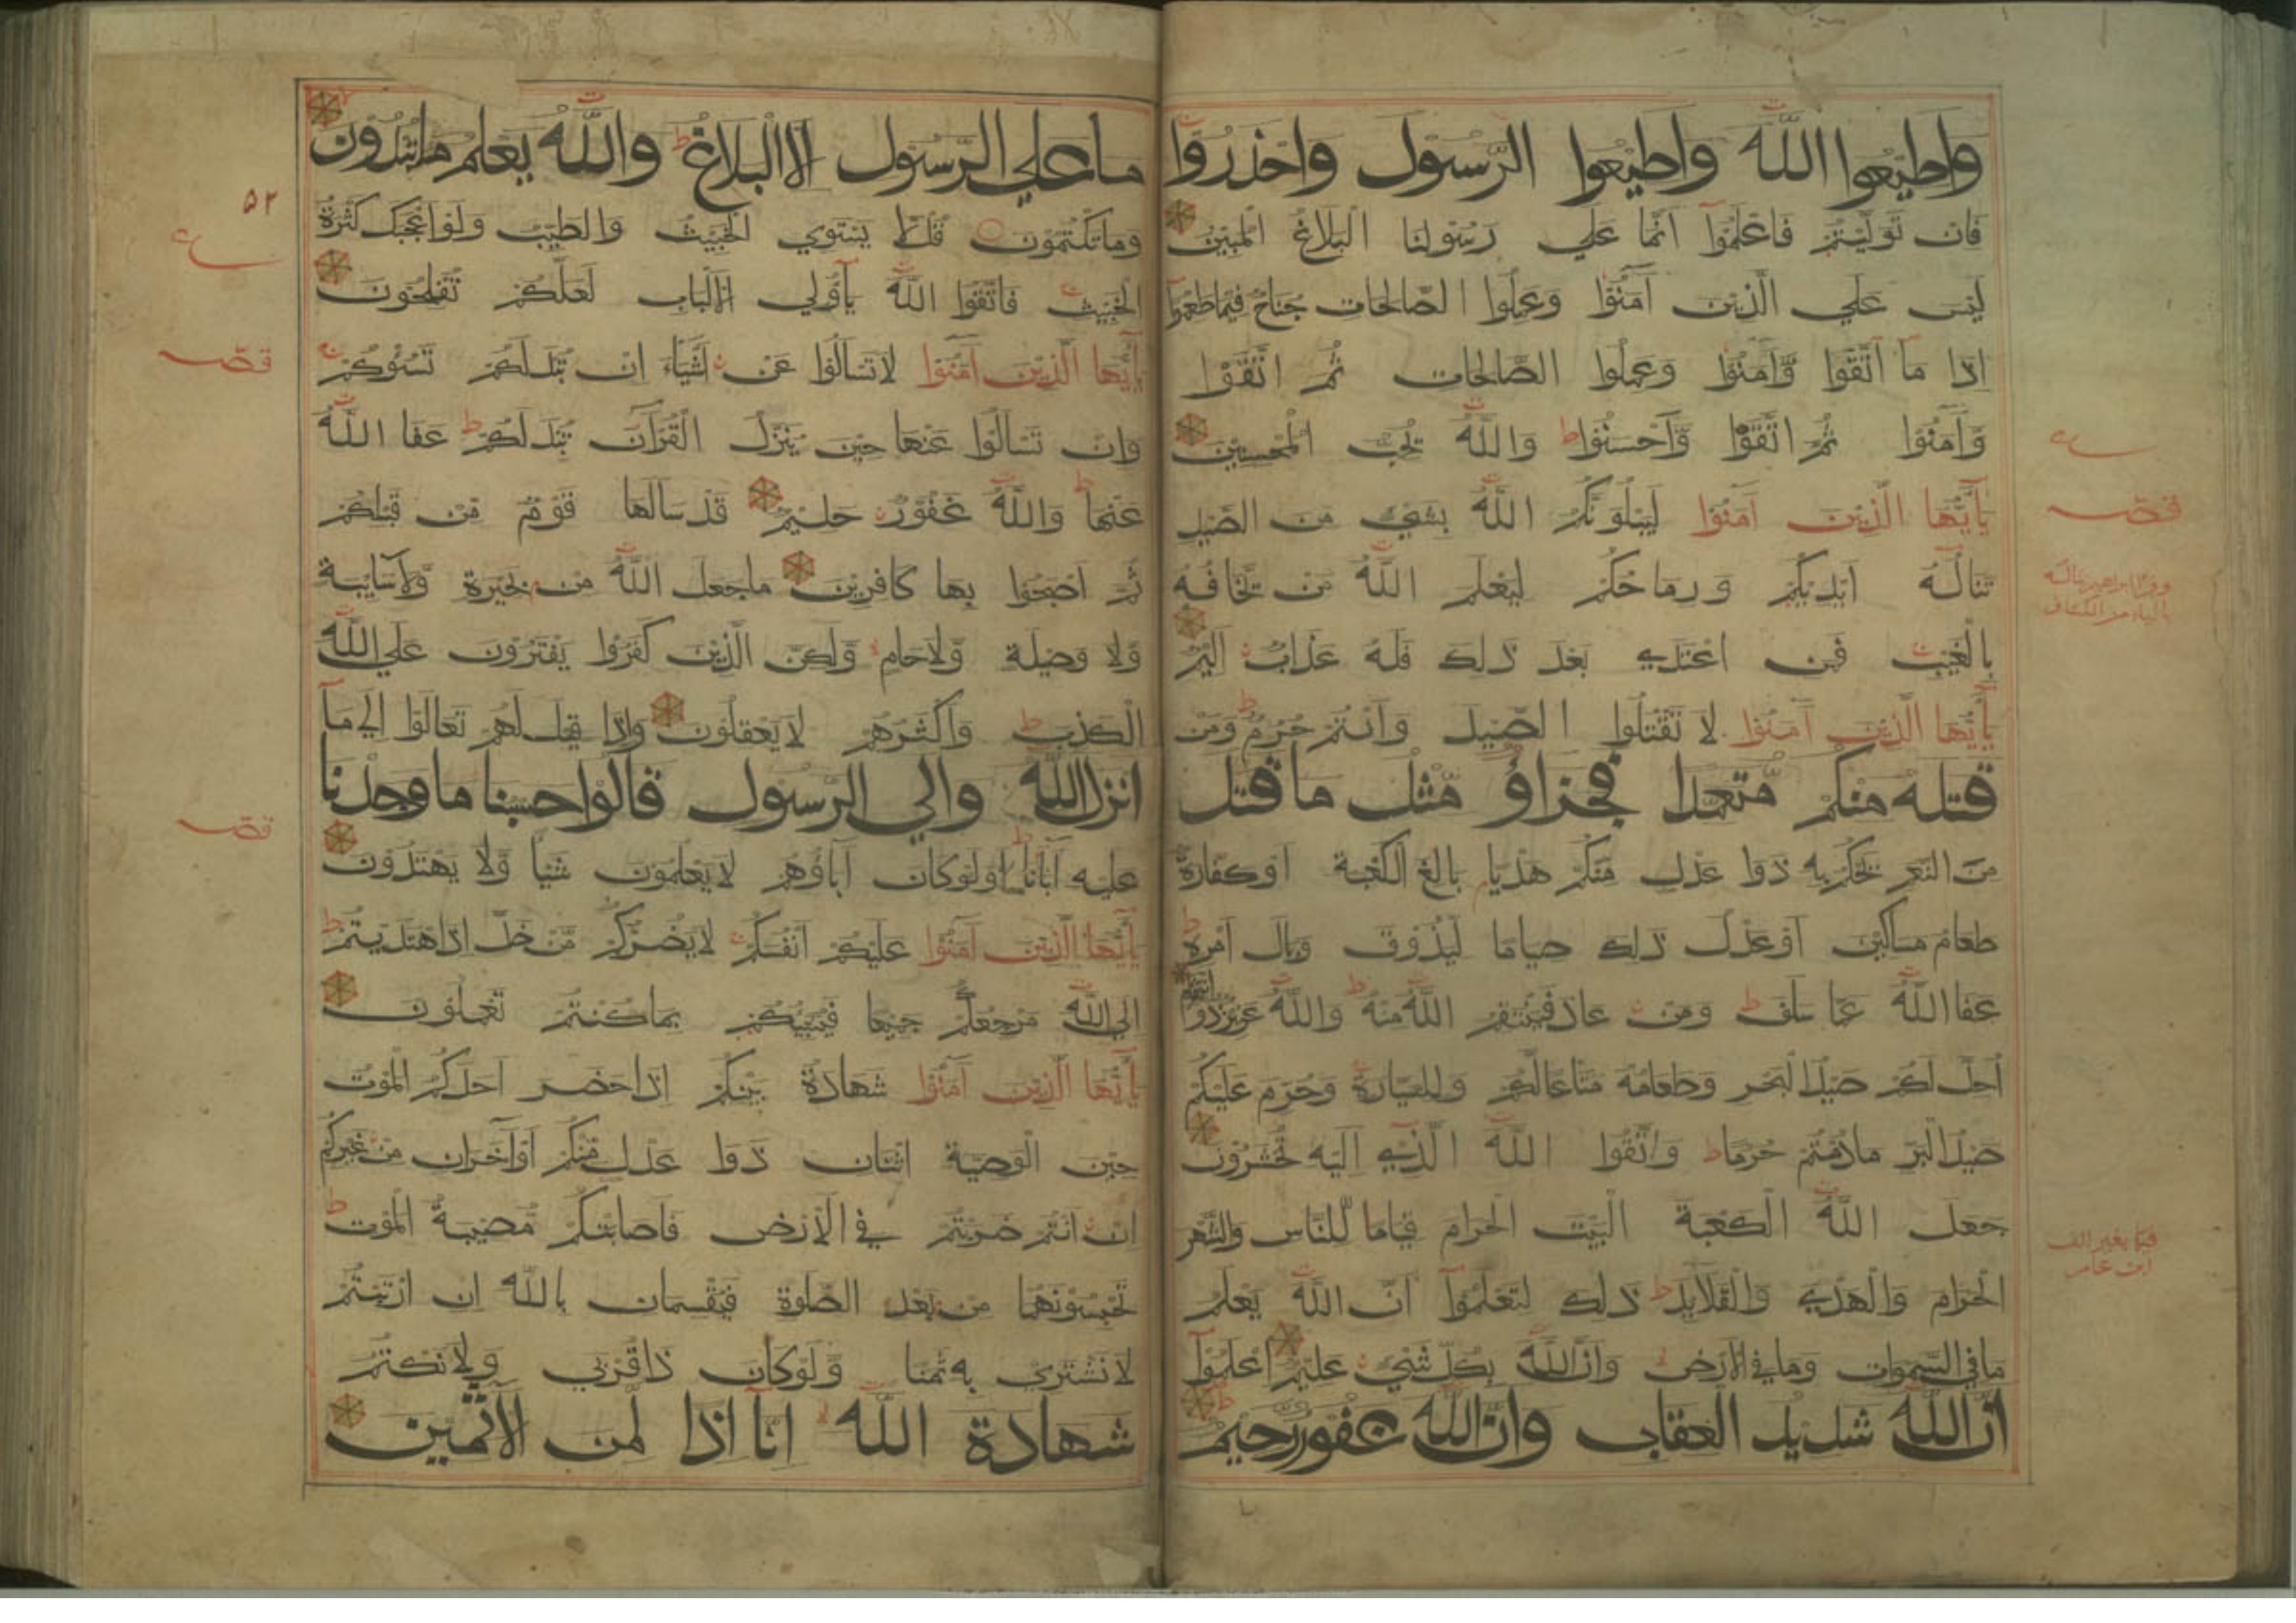 واطيعوا الله واطيعوا الرسول واحذروا
فان توليتم فاعلموا انما علي رسولنا البلاغ المبين
ليس علي الذين آمنوا وعملوا الصالحات جناح فيما طعموا
اذا ما اتقوا وآمنوا وعملوا الصالحات ثم اتقوا
وآمنوا ثم اتقوا وأحسنوا والله يحب المحسنين
يآيها الذين آمنوا ليبلونكم الله بشيء من الصيد
تناله ايديكم ورماحكم ليعلم الله من يخافه
بالغيب فمن اعتدي بعد ذلك فله عذاب اليم
يآيها الذين آمنوا لا تقتلوا الصيد وانتم حرم ومن
قتله منكم متعمدا فجزاؤ مثل ما قتل
من النعم يحكم به ذوا عدل منكم هديا بالغ الكعبة او كفارة
طعام مساكين او عدل ذلك صياما ليذوق وبال امره
عفا الله عما سلف ومن عاد فينتقم الله منه والله عزيز ذو انتقام
احل لكم صيد البحر وطعامه متاعا لكم وللسيارة وحرم عليكم
صيد البر مادمتم حرما واتقوا الله الذي اليه تحشرون
جعل الله الكعبة البيت الحرام قياما للناس والشهر
الحرام والهدي والقلايد ذلك لتعلموا ان الله يعلم
ما في السموات وما في الارض وان الله بكل شيء عليم اعلموا
ان الله شديد العقاب وان الله غفور رحيم
قصـ
قيما بغير الف
ابن عامر
ما علي الرسول الا البلاغ والله يعلم ما تبدون
وما تكتمون قل لا يستوي الخبيث والطيب ولو اعجبك كثرة
الخبيث فاتقوا الله يآولي الالباب لعلكم تفلحون
يآيها الذين آمنوا لا تسالوا عن اشياء ان تبد لكم تسؤكم
وان تسالوا عنها حين ينزل القرآن تبد لكم عفا الله
عنها والله غفور حليم قد سالها قوم من قبلكم
ثم اصبحوا بها كافرين ما جعل الله من بحيرة ولا سايبة
ولا وصيلة ولا حام ولكن الذين كفروا يفترون علي الله
الكذب واكثرهم لا يعقلون واذا قيل لهم تعالوا الي ما
انزل الله والي الرسول قالوا حسبنا ما وجدنا
عليه آبآنا اولو كان آباؤهم لا يعلمون شيا ولا يهتدون
يآيها الذين آمنوا عليكم انفسكم لا يضركم من ضل اذا اهتديتم
الي الله مرجعكم جميعا فينبيكم بما كنتم تعملون
يآيها الذين آمنوا شهادة بينكم اذا حضر احدكم الموت
حين الوصية اثنان ذوا عدل منكم او آخران من غيركم
ان انتم ضربتم في الارض فاصابتكم مصيبة الموت
تحبسونهما من بعد الصلوة فيقسمان بالله ان ارتبتم
لا نشتري به ثمنا ولو كان ذا قربي ولا نكتم
شهادة الله انا اذا لمن الآثمين
۵۲
قصـ
قصـ